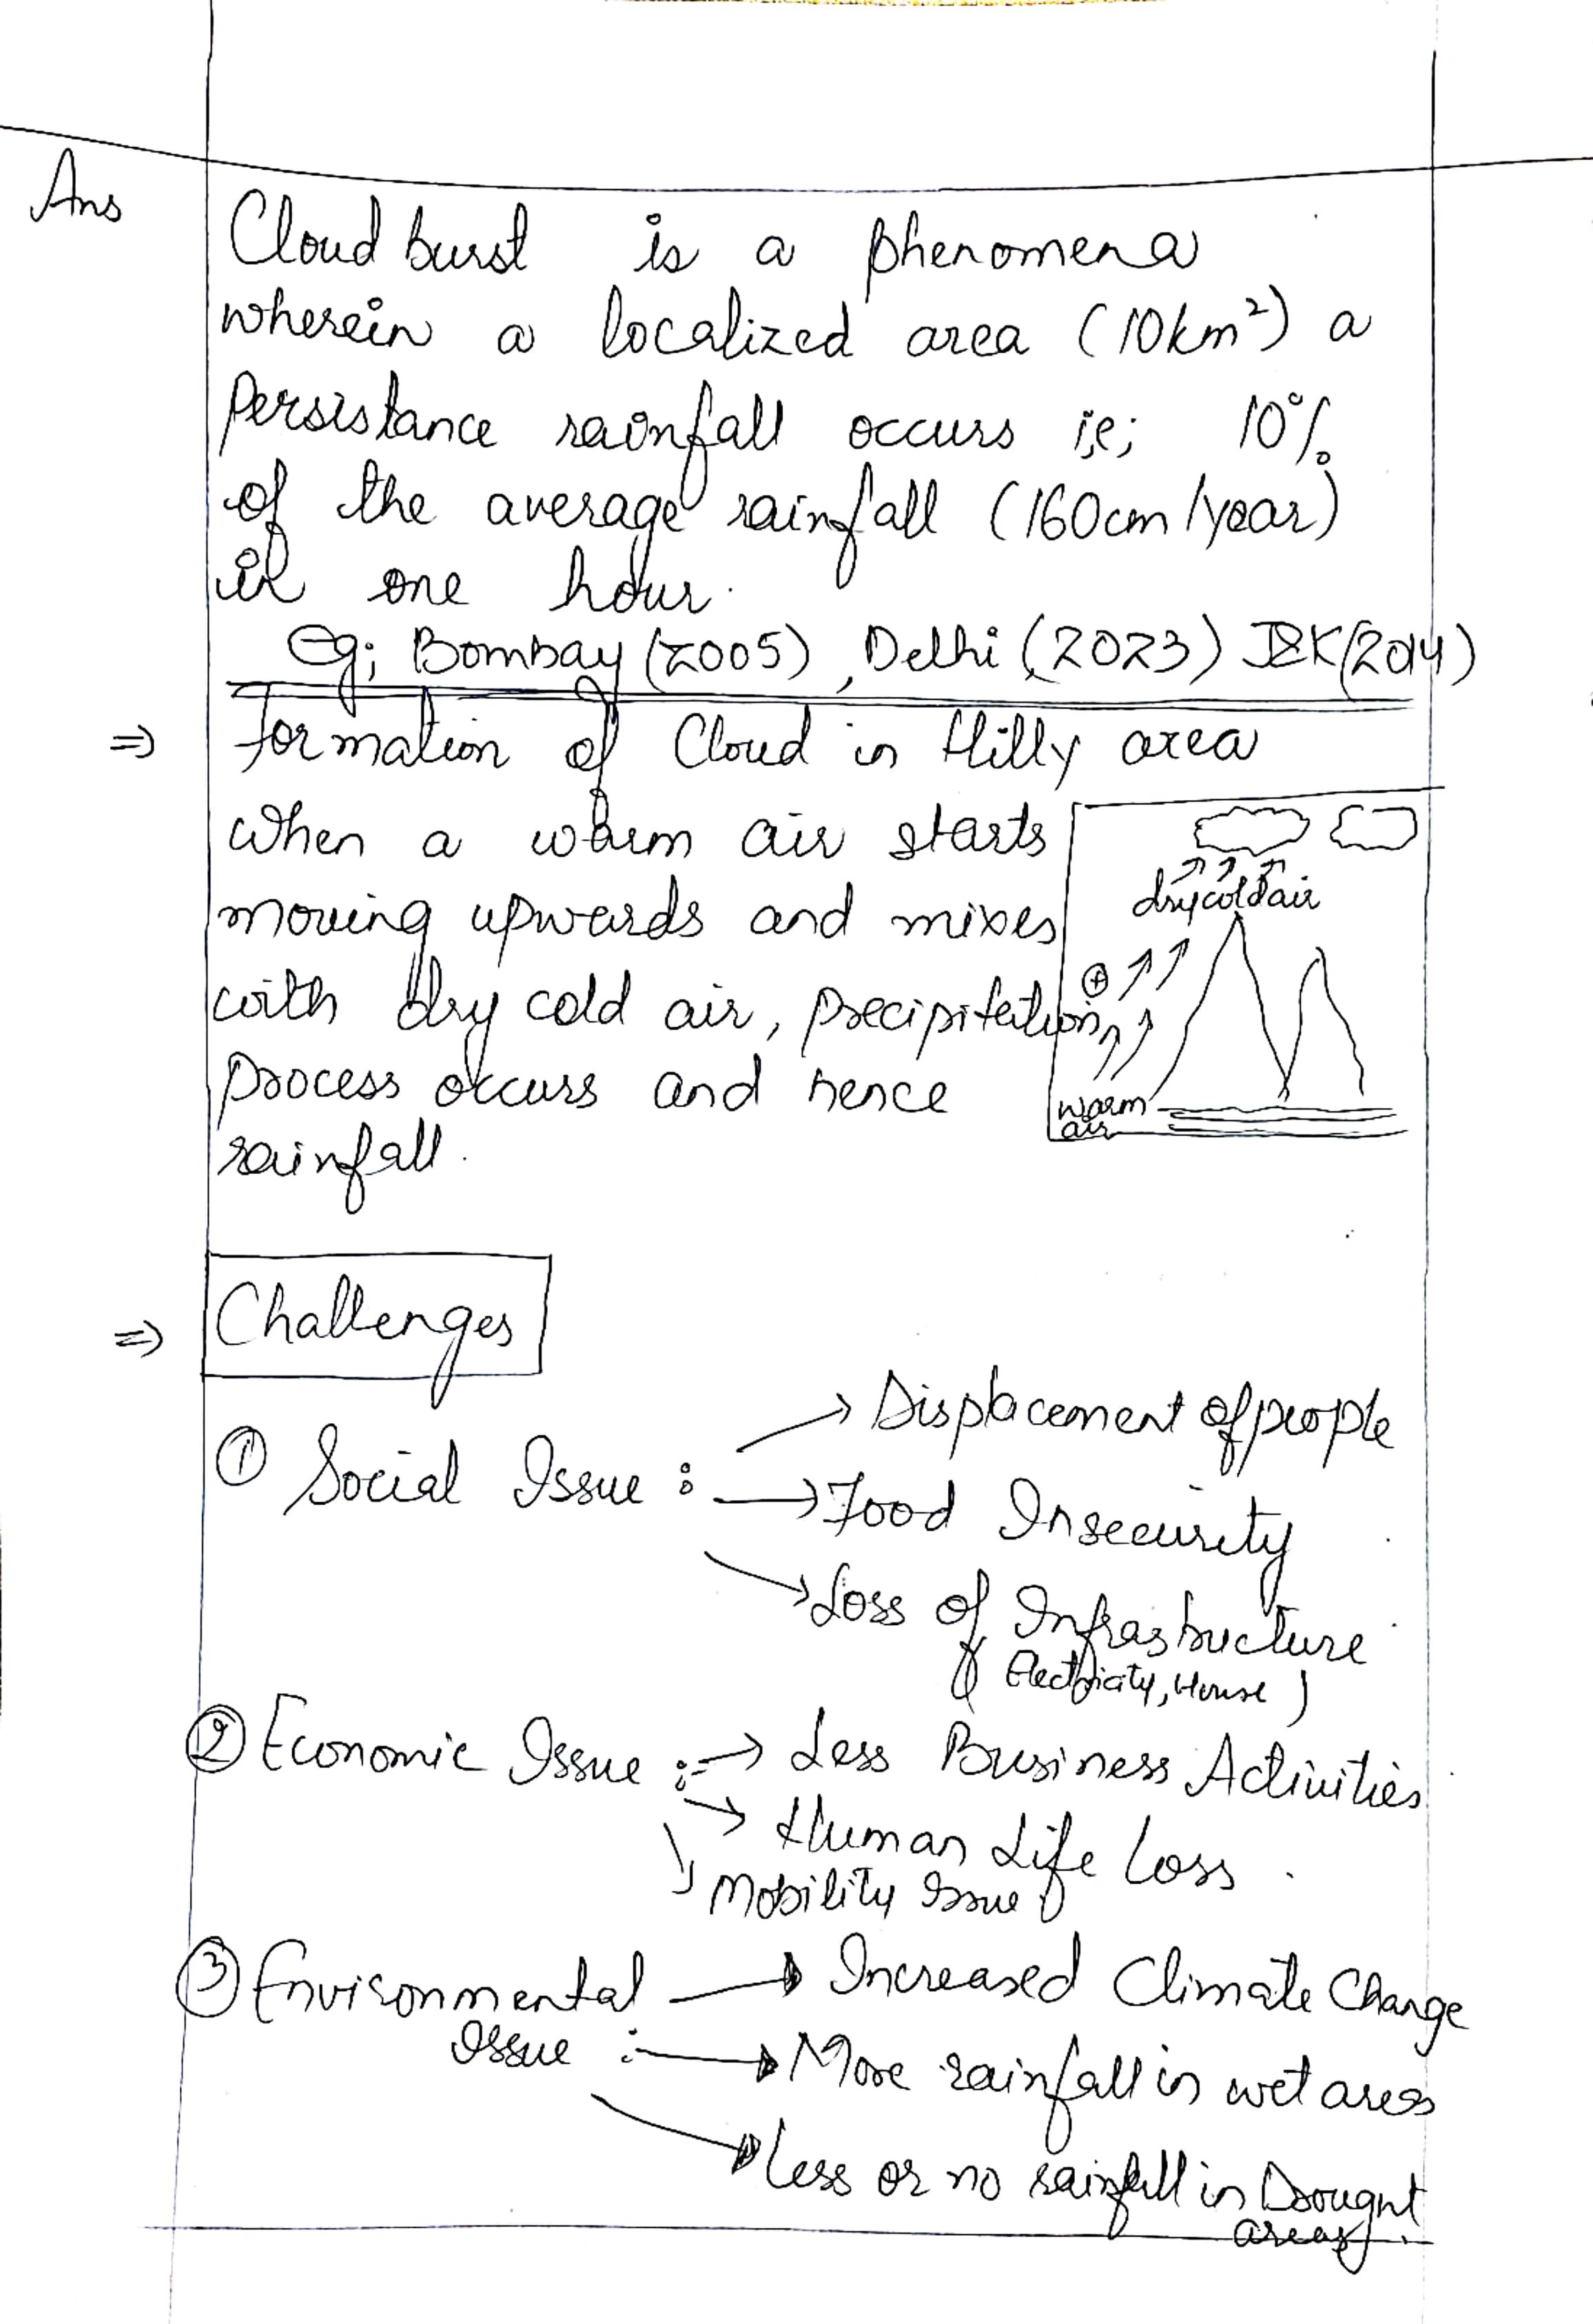 Ans
Cloud burst is a phenomena
wherein a localized area (10km²) a
Persistance rainfall occurs i.e; 10%
of the average rainfall (160cm/year)
in one hour.
Eg; Bombay (2005), Delhi (2023) J&K (2014)
⇒ Formation of Cloud in Hilly area
When a warm air starts
moving upwards and mixes
with dry cold air, precipitation
process occurs and hence
rainfall.
dry cold air
⊕
warm
air
⇒ Challenges
① Social Issue : → Displacement of people
→ Food Insecurity
→ Loss of Infrastructure
(Electricity, House)
② Economic Issue :- → Less Business Activities
→ Human Life Loss.
→ Mobility Issue
③ Environmental → Increased Climate Change
Issue :- → More rainfall in wet areas
→ Less or no rainfall in Drought
areas.